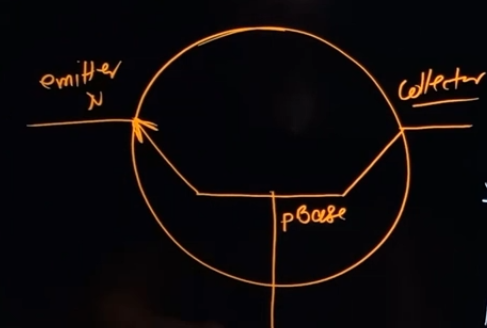 emitter
N
collector
pBase